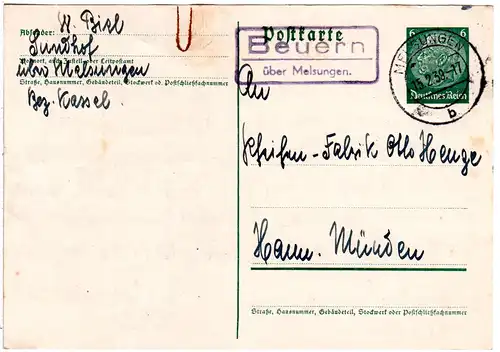 Absender: W. Biel
Sundhof
Wohnort, auch Zustell- oder Leitpostamt
über Melsungen
Straße, Hausnummer, Gebäudeteil, Stockwerk od. Postschließfachnummer
Bez. Kassel.
Postkarte
Beuern
über Melsungen.
MELSUNGEN
b
6 6
Deutsches Reich
An
Otto Henze
Hann. Münden
Straße, Hausnummer, Gebäudeteil, Stockwerk oder Postschließfachnummer